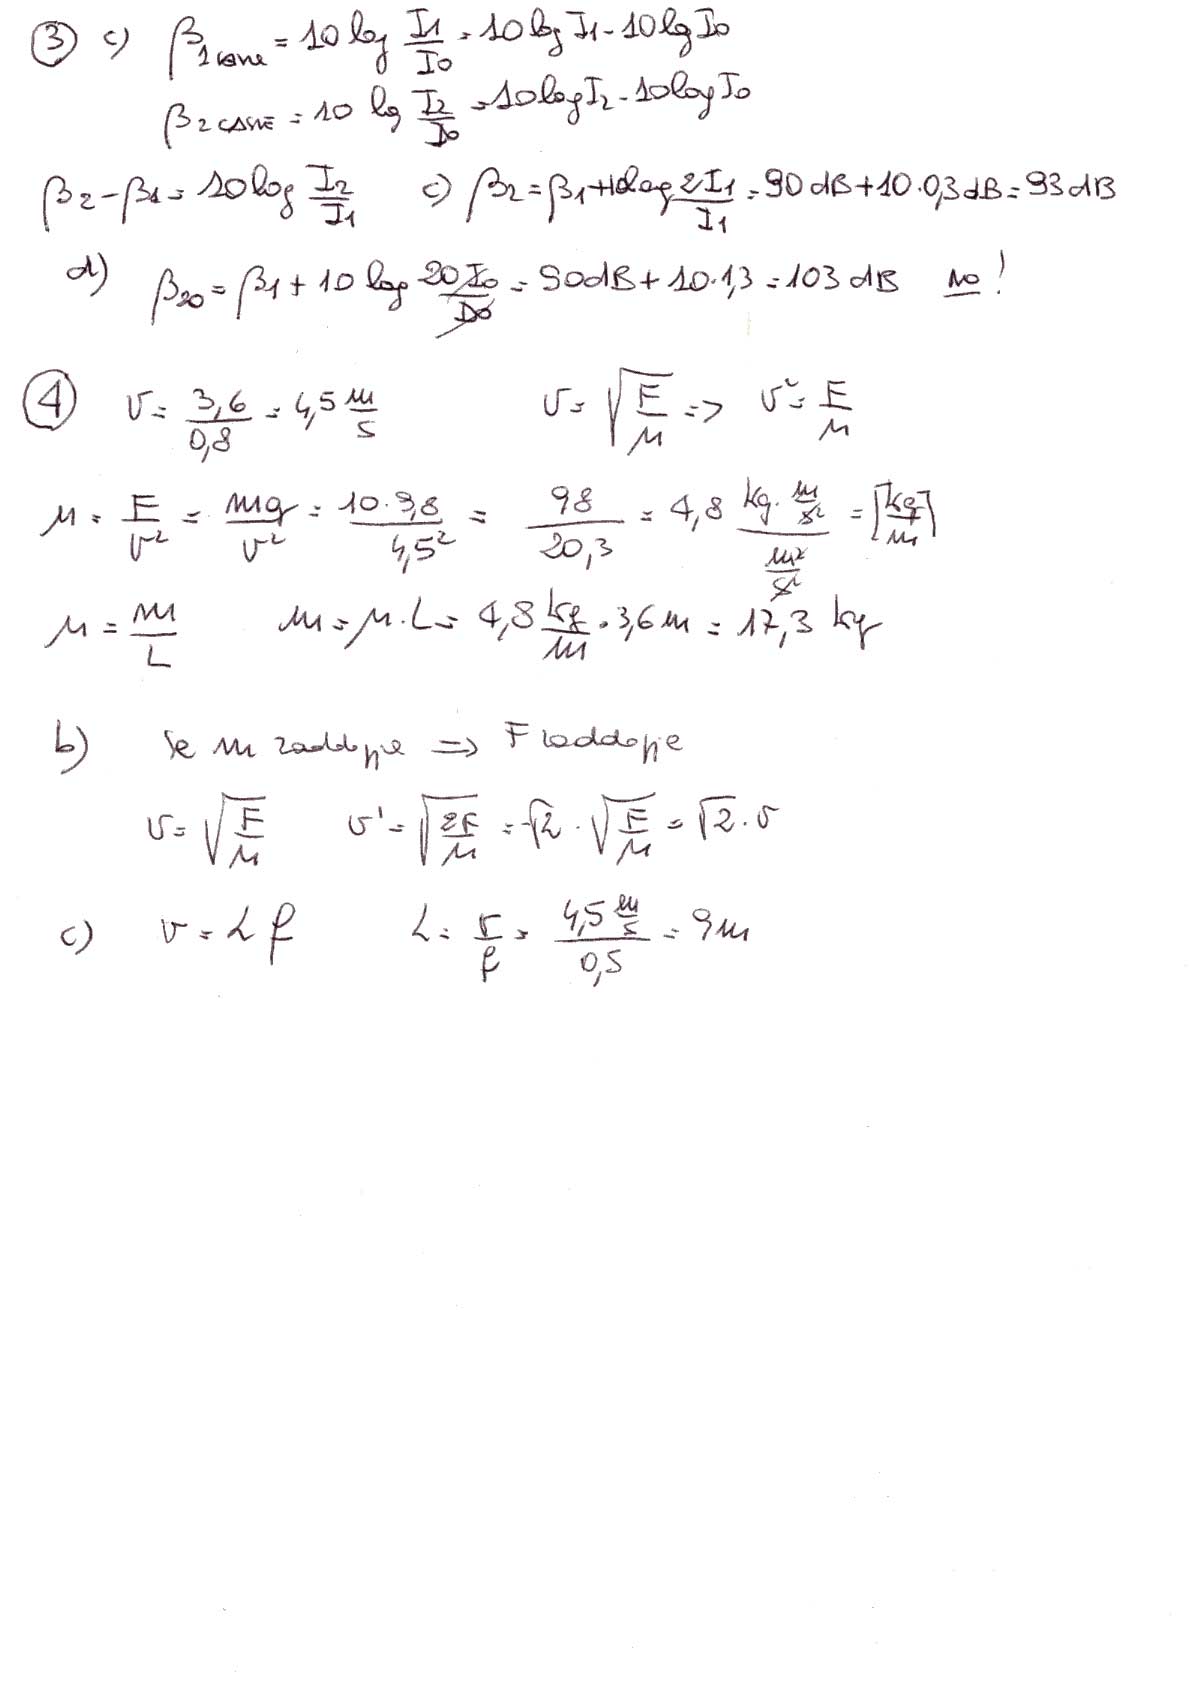 ③ c) β1 cane = 10 log I1/I0 = 10 log I1 - 10 lg I0
β2 CANE = 10 lg I2/I0 = 10 log I2 - 10 log I0
β2 - β1 = 10 log I2/I1 c) β2 = β1 + 10 log 2I1/I1 = 90 dB + 10 · 0,3 dB = 93 dB
d) β20 = β1 + 10 log 20 I0/I0 = 90 dB + 10 · 1,3 = 103 dB no!
④ v = 3,6/0,8 = 4,5 m/s v = √(F/μ) => v² = F/μ
μ = F/v² = mg/v² = 10 · 9,8/4,5² = 98/20,3 = 4,8 kg · m/s² / m²/s² = [kg/m]
μ = m/L m = μ · L = 4,8 kg/m · 3,6 m = 17,3 kg
b) Se m raddoppie => F raddoppie
v = √(F/μ) v' = √(2F/μ) = √2 · √(F/μ) = √2 · v
c) v = λ f λ = v/f = 4,5 m/s / 0,5 = 9 m